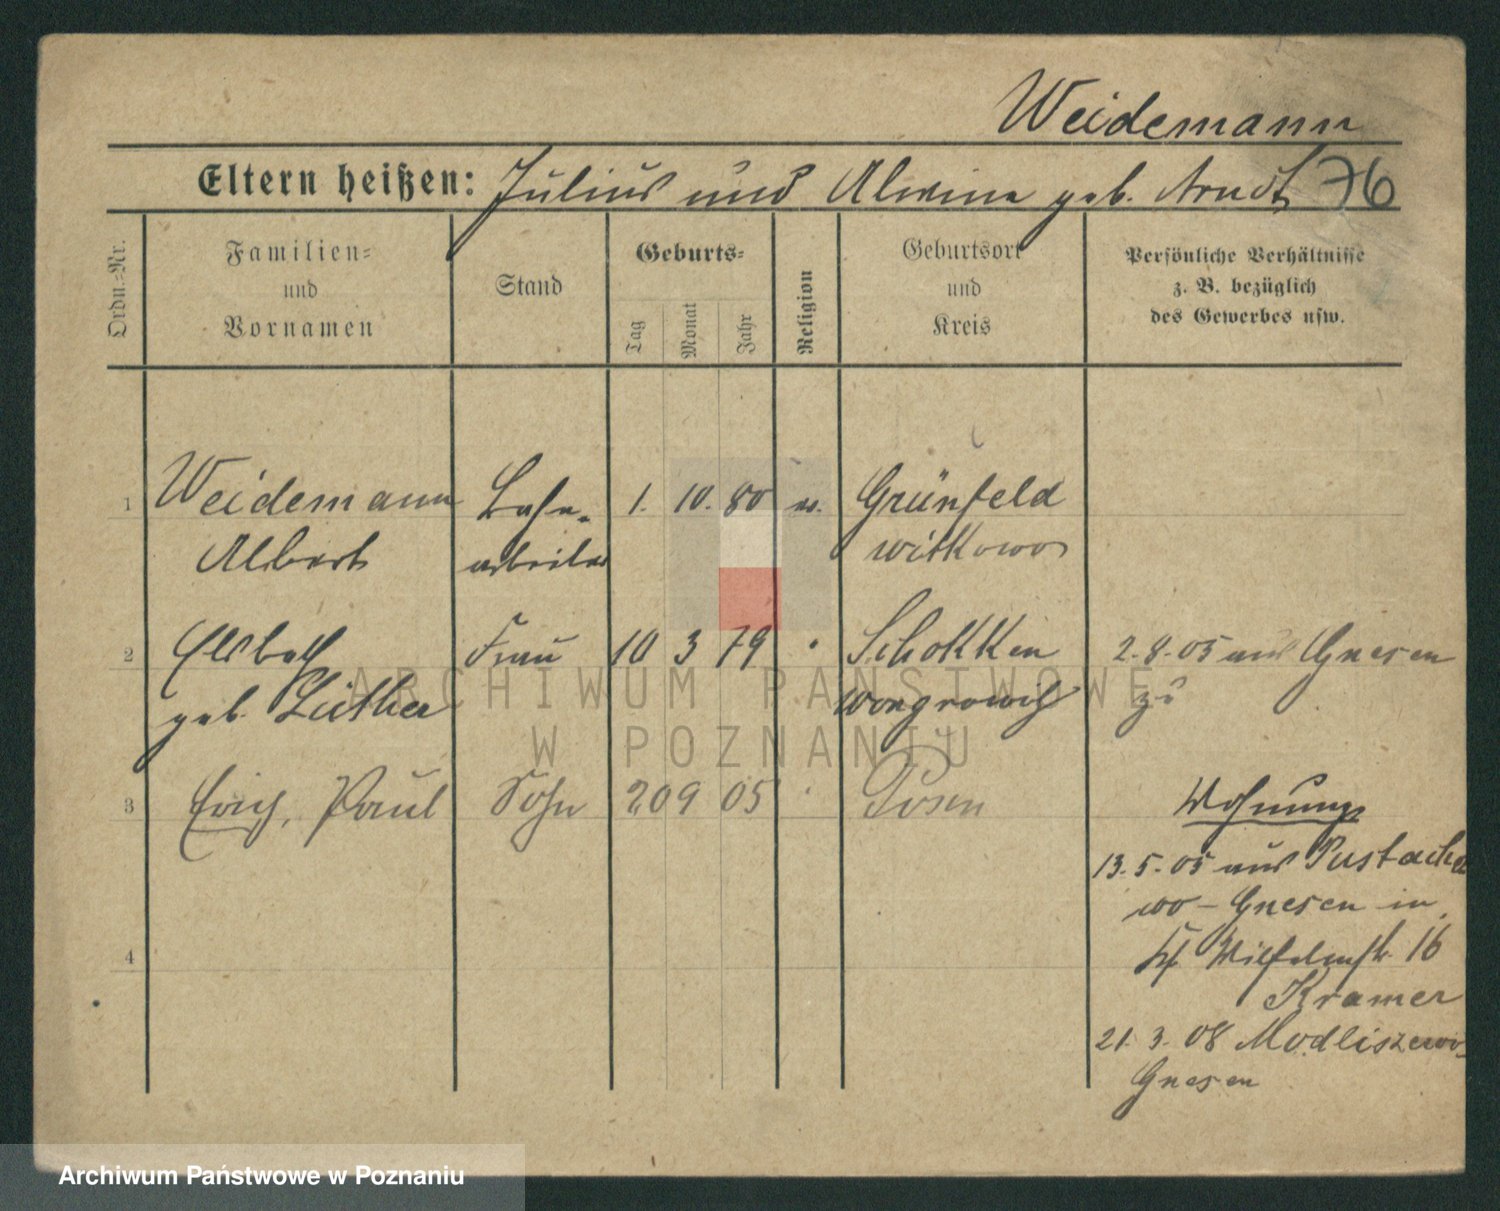 Weidemann
Eltern heißen: Julius und Alwine geb. Arndt 76
Ordn.-Nr.
Familien-
und
Vornamen
Stand
Geburts-
Tag
Monat
Jahr
Religion
Geburtsort
und
Kreis
Persönliche Verhältnisse
z. B. bezüglich
des Gewerbes usw.
1 Weidemann Bahn- 1. 10. 80 ev. Grünfeld
Albert arbeiter Witkowo
2 Elsbeth Frau 10 3 79 " Schokken 2.8.05 aus Gnesen
geb. Lüther Wongrowitz zu
3 Erich, Paul Sohn 20 9 05 " Posen Wohnung
13.5.05 aus Pustachowo-
Gnesen in
Wilhelmstr. 16
4
Kramer
21. 3. 08 Modliszewo-
Gnesen
ARCHIWUM PAŃSTWOWE
W POZNANIU
Archiwum Państwowe w Poznaniu